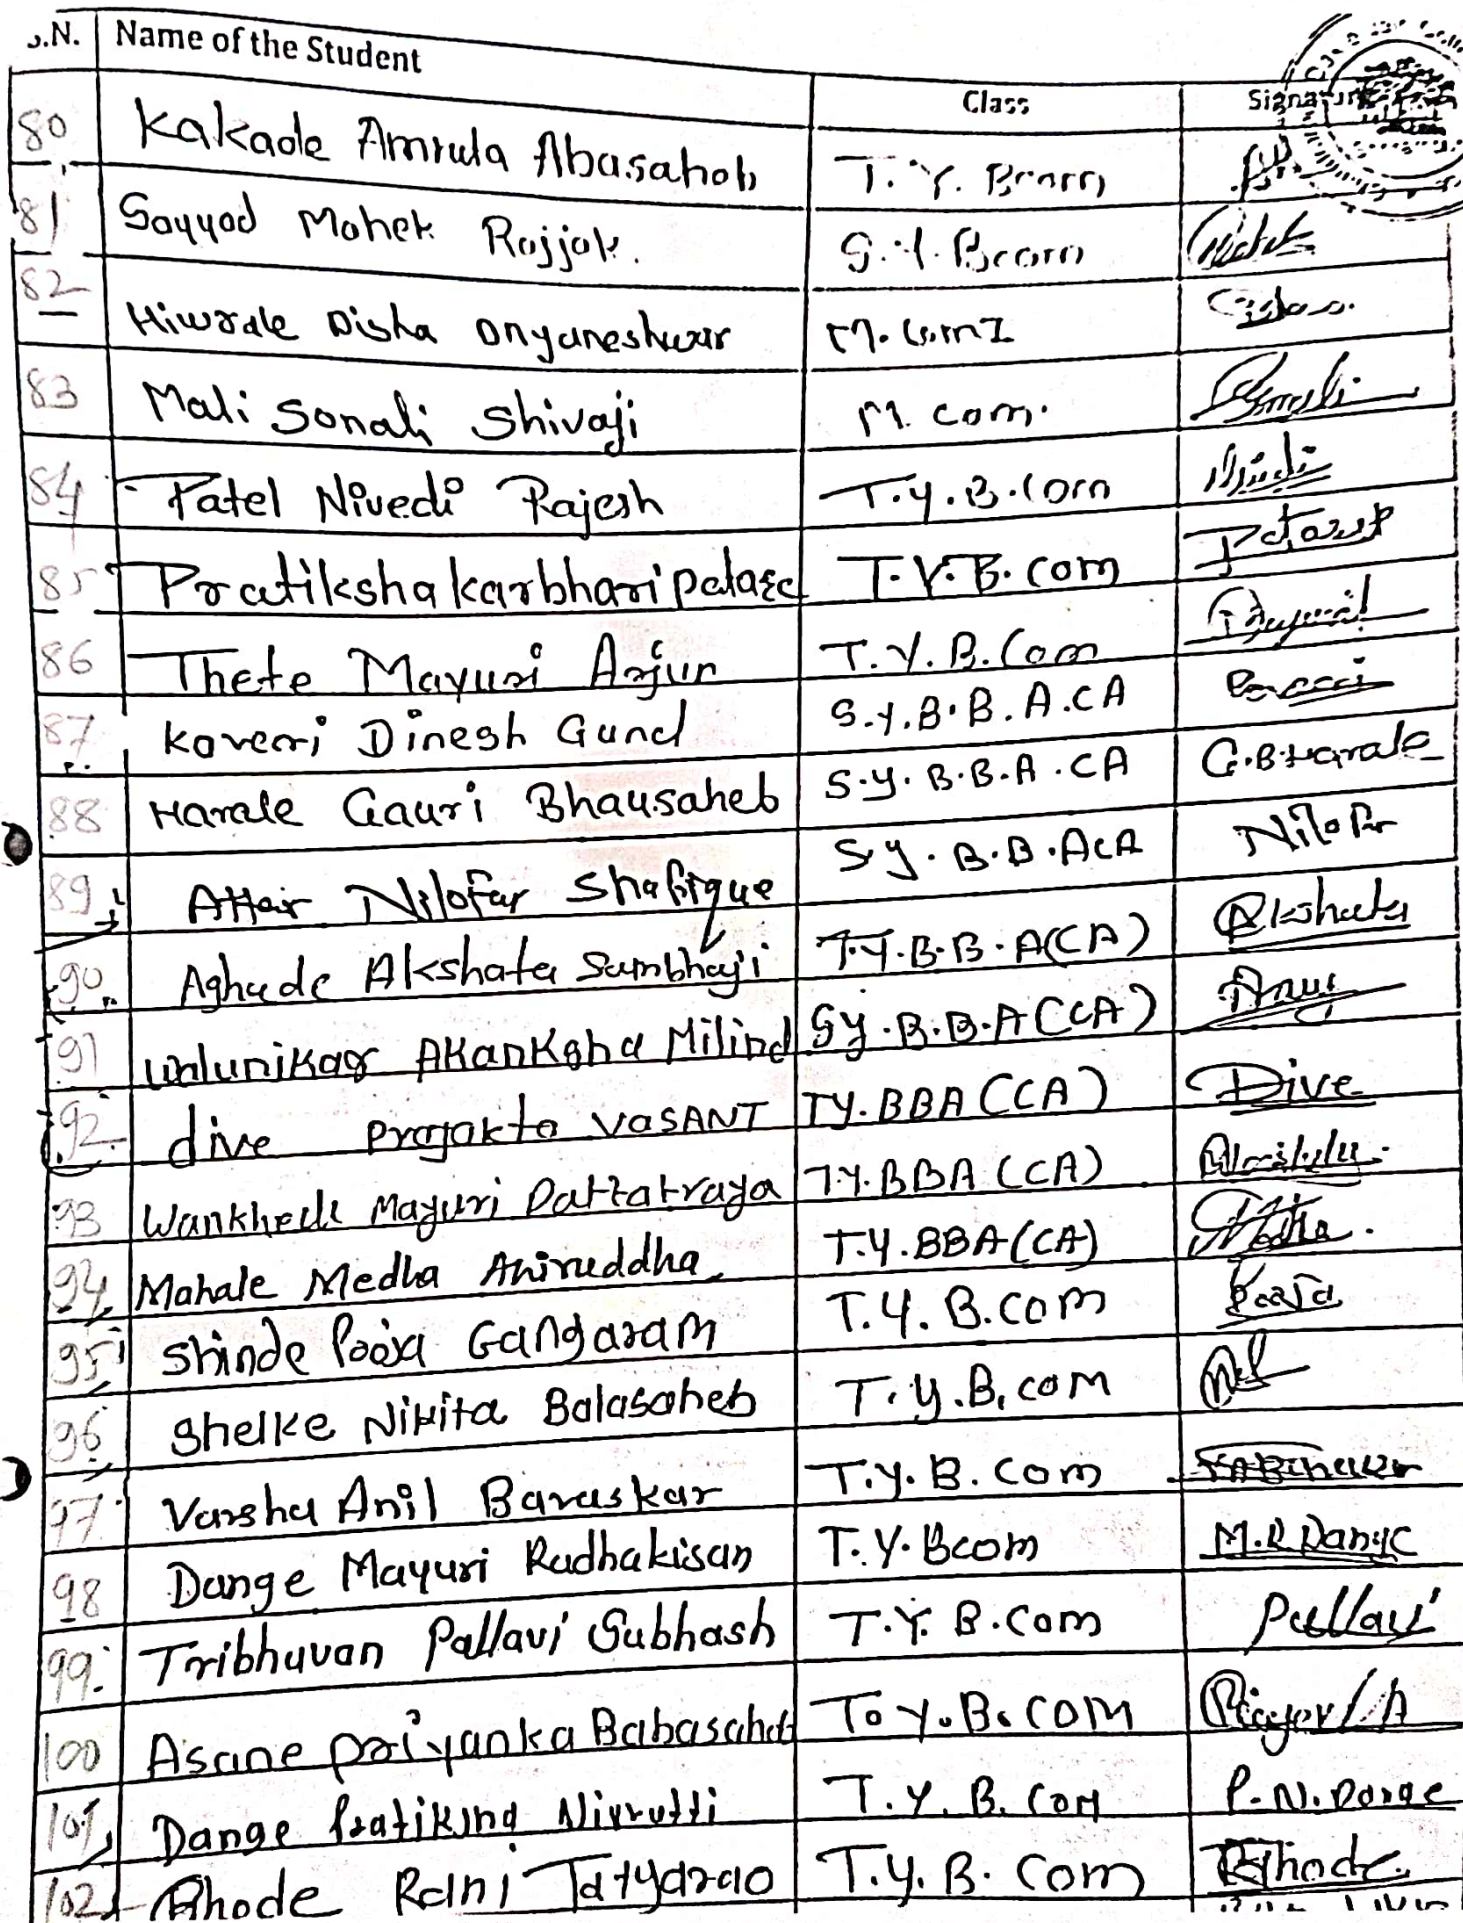 S.N. Name of the Student Class Signature
80 Kakade Amruta Abasaheb T.Y. Bcom
81 Sayyad Mahek Rajjak. S.Y. Bcom
82 Hiwrale Disha Dnyaneshwar M.Com I
83 Mali Sonali Shivaji M. com.
84 Patel Nivedi Rajesh T.y.B.Com
85 Pratiksha karbhari T.Y.B.com
86 Thete Mayuri Arjun T.Y.B.Com
87 Kaveri Dinesh Gund S.Y.B.B.A.CA
88 Harale Gauri Bhausaheb S.y.B.B.A.CA G.B.Harale
89 Attar Nilofar Shafique S y.B.B.ACA Nilofar
90 Aghade Akshata Sambhaji T.Y.B.B.A(CA) Akshata
91 Walunikar Akanksha Milind Sy.B.B.A(CA)
92 dive prajakta VASANT TY.BBA(CA) Dive
93 Wankhede Mayuri Dattatraya T.Y.BBA (CA)
94 Mahale Medha Aniruddha T.Y.BBA(CA) Medha
95 Shinde Pooja Gangaram T.Y.B.com Pooja
96 Shelke Nikita Balasaheb T.y.B.com
97 Varsha Anil Bavaskar T.y.B.com
98 Dange Mayuri Radhakisan T.Y.Bcom M.R Dange
99. Tribhuvan Pallavi Subhash T.Y.B.Com Pallavi
100 Asane priyanka Babasaheb T.Y.B.COM
101 Dange Nivrutti T.Y.B.Com P.N.Dange
102 Rhode Rani Tatyarao T.Y.B.Com Rhode